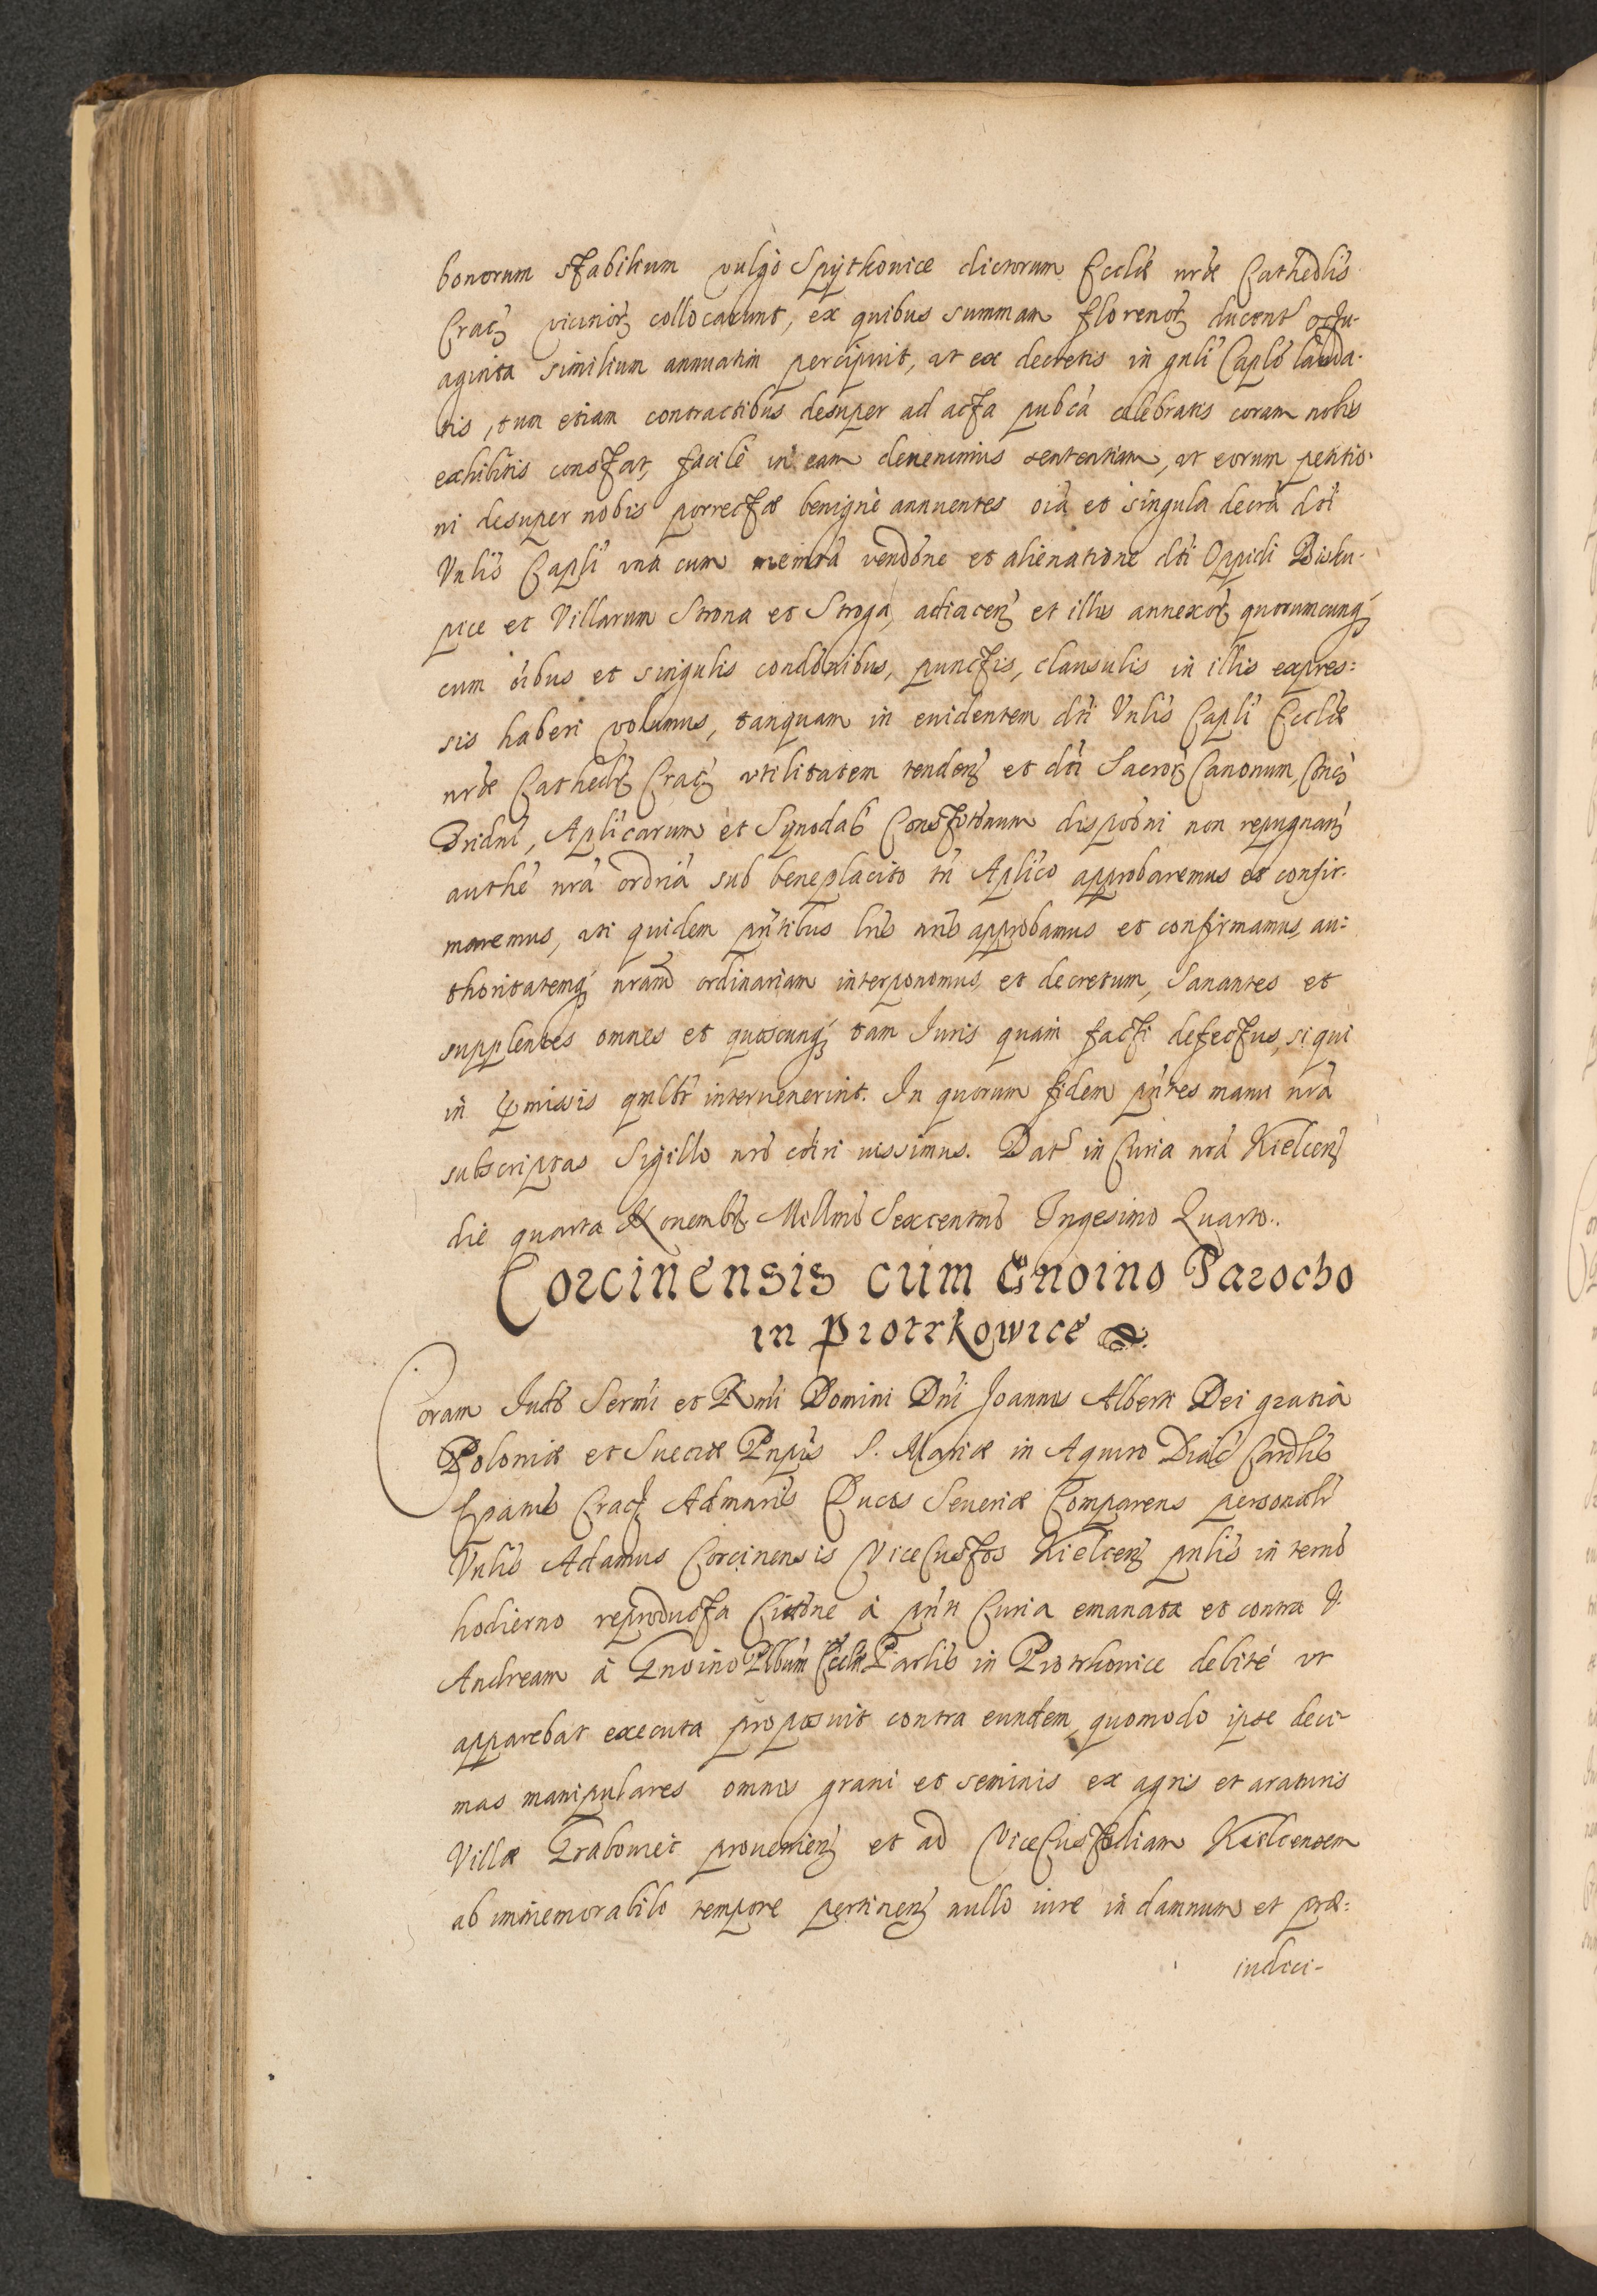 bonorum stabilium vulgò Spÿtkovice dictorum Eccliæ nrãe Cathedlis
Crac: vicinior: collocarunt, ex quibus summam florenor: ducent octu-
aginta similium annuatim percipiunt, ut ex decretis in gnli Caplo lauda-
tis, tum etiam contractibus desuper ad acta pubca celebratis coram nobis
exhibitis constat, facilè in eam devenimus sententiam, ut eorum petitio-
ni desuper nobis porrectæ benignè annuentes oia et singula decra dti
Vnlis Capli una cum memta vendone et alienatione dti Oppidi Bisku-
pice et Villarum Strona et Stroga, adiacen: et illis annexor: quorumcunq;
cum oibus et singulis condonibus, punctis, clausulis in illis expres=
sis haberi volumus, tanquam in evidentem dti Vnlis Capli Eccliæ
nrãe Cathedlis Crac: utilitatem tenden: et dti Sacror: Canonum, Conc:
Tridni, Aplicarum et Synodal Constitonum dispoõni non repugnan:
authe nrã ordria sub beneplacito tn Aplico approbaremus et confir-
maremus, uti quidem pntibus lris nris approbamus et confirmamus, au=
thoritatemq; nram ordinariam interponomus et decretum, Sanantes et
supplentes omnes et quoscunq; tam Iuris quam facti defectus, si qui
in pmissis qmlbt intervenerint. In quorum fidem pntes manu nrã
subscriptas Sigillo nro cõiri iussimus. Dat in Curia nrã Kielcen:
die quarta Novembr: Millmo Sexcentmo Trigesimo Quarto..
Corcinensis cum Gnoino Parocho
in Piotrkowice
Coram Iudo Sermi et Rmi Domini Dni Joannis Alberti Dei gratiâ
Poloniæ et Sueciæ Pnpis S. Mariæ in Aquiro Diac Cardlis
Epatus Crac: Admnris Ducis Severiæ Comparens personalr
Vnlis Adamus Corcinensis ViceCustos Kielcen: pnlis in termo
hodierno reproducta Citone à pnti Curia emanata et contra V.
Andream à Gnoino Plbum Eccliæ Parlis in Piotrkovice debitè ut
apparebat executa proposuit contra eundem, quomodo ipse deci-
mas manipulares omnis grani et seminis ex agris et araturis
Villæ Grabowiec provenien: et ad ViceCustodiam Kielcensem
ab immemorabili tempore pertinen: nullo iure in damnum et præ=
iudici-